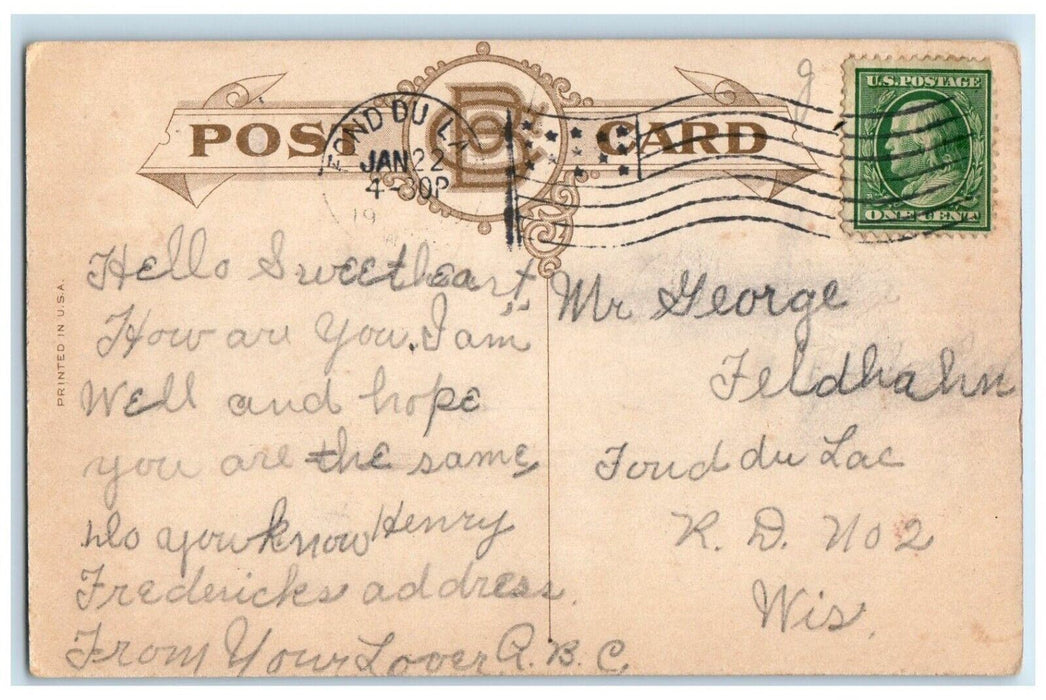 POST CARD
U.S. POSTAGE
ONE CENT
FOND DU L
JAN 22
4-30P
19
PRINTED IN U.S.A.
Hello Sweetheart,
How are You. I am
Well and hope
you are the same,
Do you know Henry
Fredericks address.
From Your Lover A. B. C.
Mr George
Feldhahn
Fond du Lac
R. D. No 2
Wis.